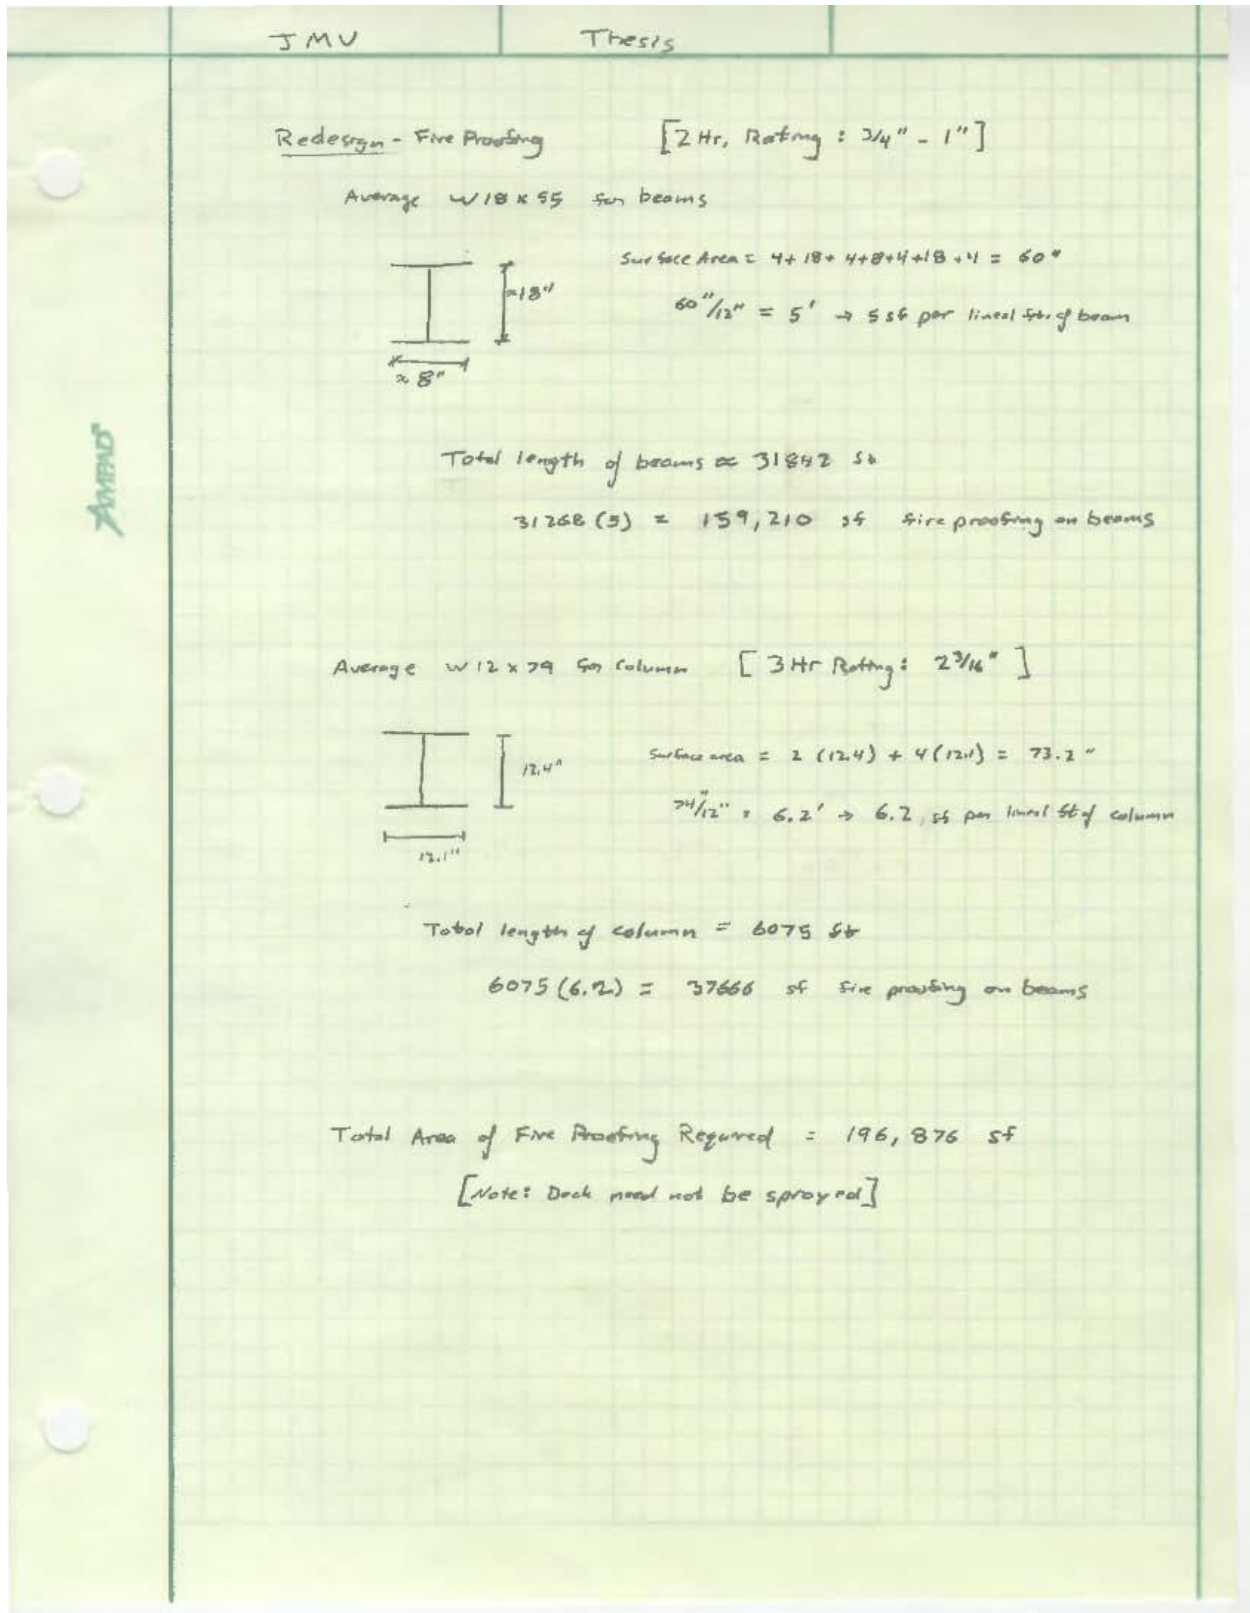 JMV Thesis
Redesign - Fire Proofing [2 Hr, Rating : 3/4" - 1"]
Average W18 x 55 for beams
Surface Area = 4+18+4+8+4+18+4 = 60"
≈18"
60"/12" = 5' → 5 sf per lineal ft. of beam
≈ 8"
AMPAD
Total length of beams ≈ 31842 ft
31268 (5) = 159,210 sf fire proofing on beams
Average W12 x 79 for column [3 Hr Rating : 2 3/16"]
Surface area = 2 (12.4) + 4 (12.1) = 73.2"
12.4"
74"/12" = 6.2' → 6.2 sf per lineal ft of column
12.1"
Total length of column = 6075 ft
6075 (6.2) = 37666 sf fire proofing on beams
Total Area of Fire Proofing Required = 196,876 sf
[Note: Deck need not be sprayed]